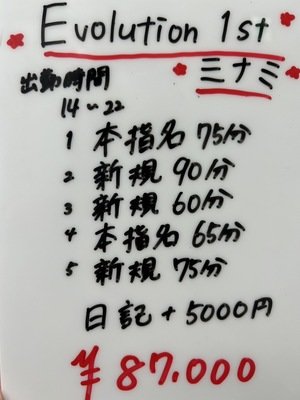 Evolution 1st
ミナミ
出勤時間
14~22
1 本指名 75分
2 新規 90分
3 新規 60分
4 本指名 65分
5 新規 75分
日記+5000円
¥87.000